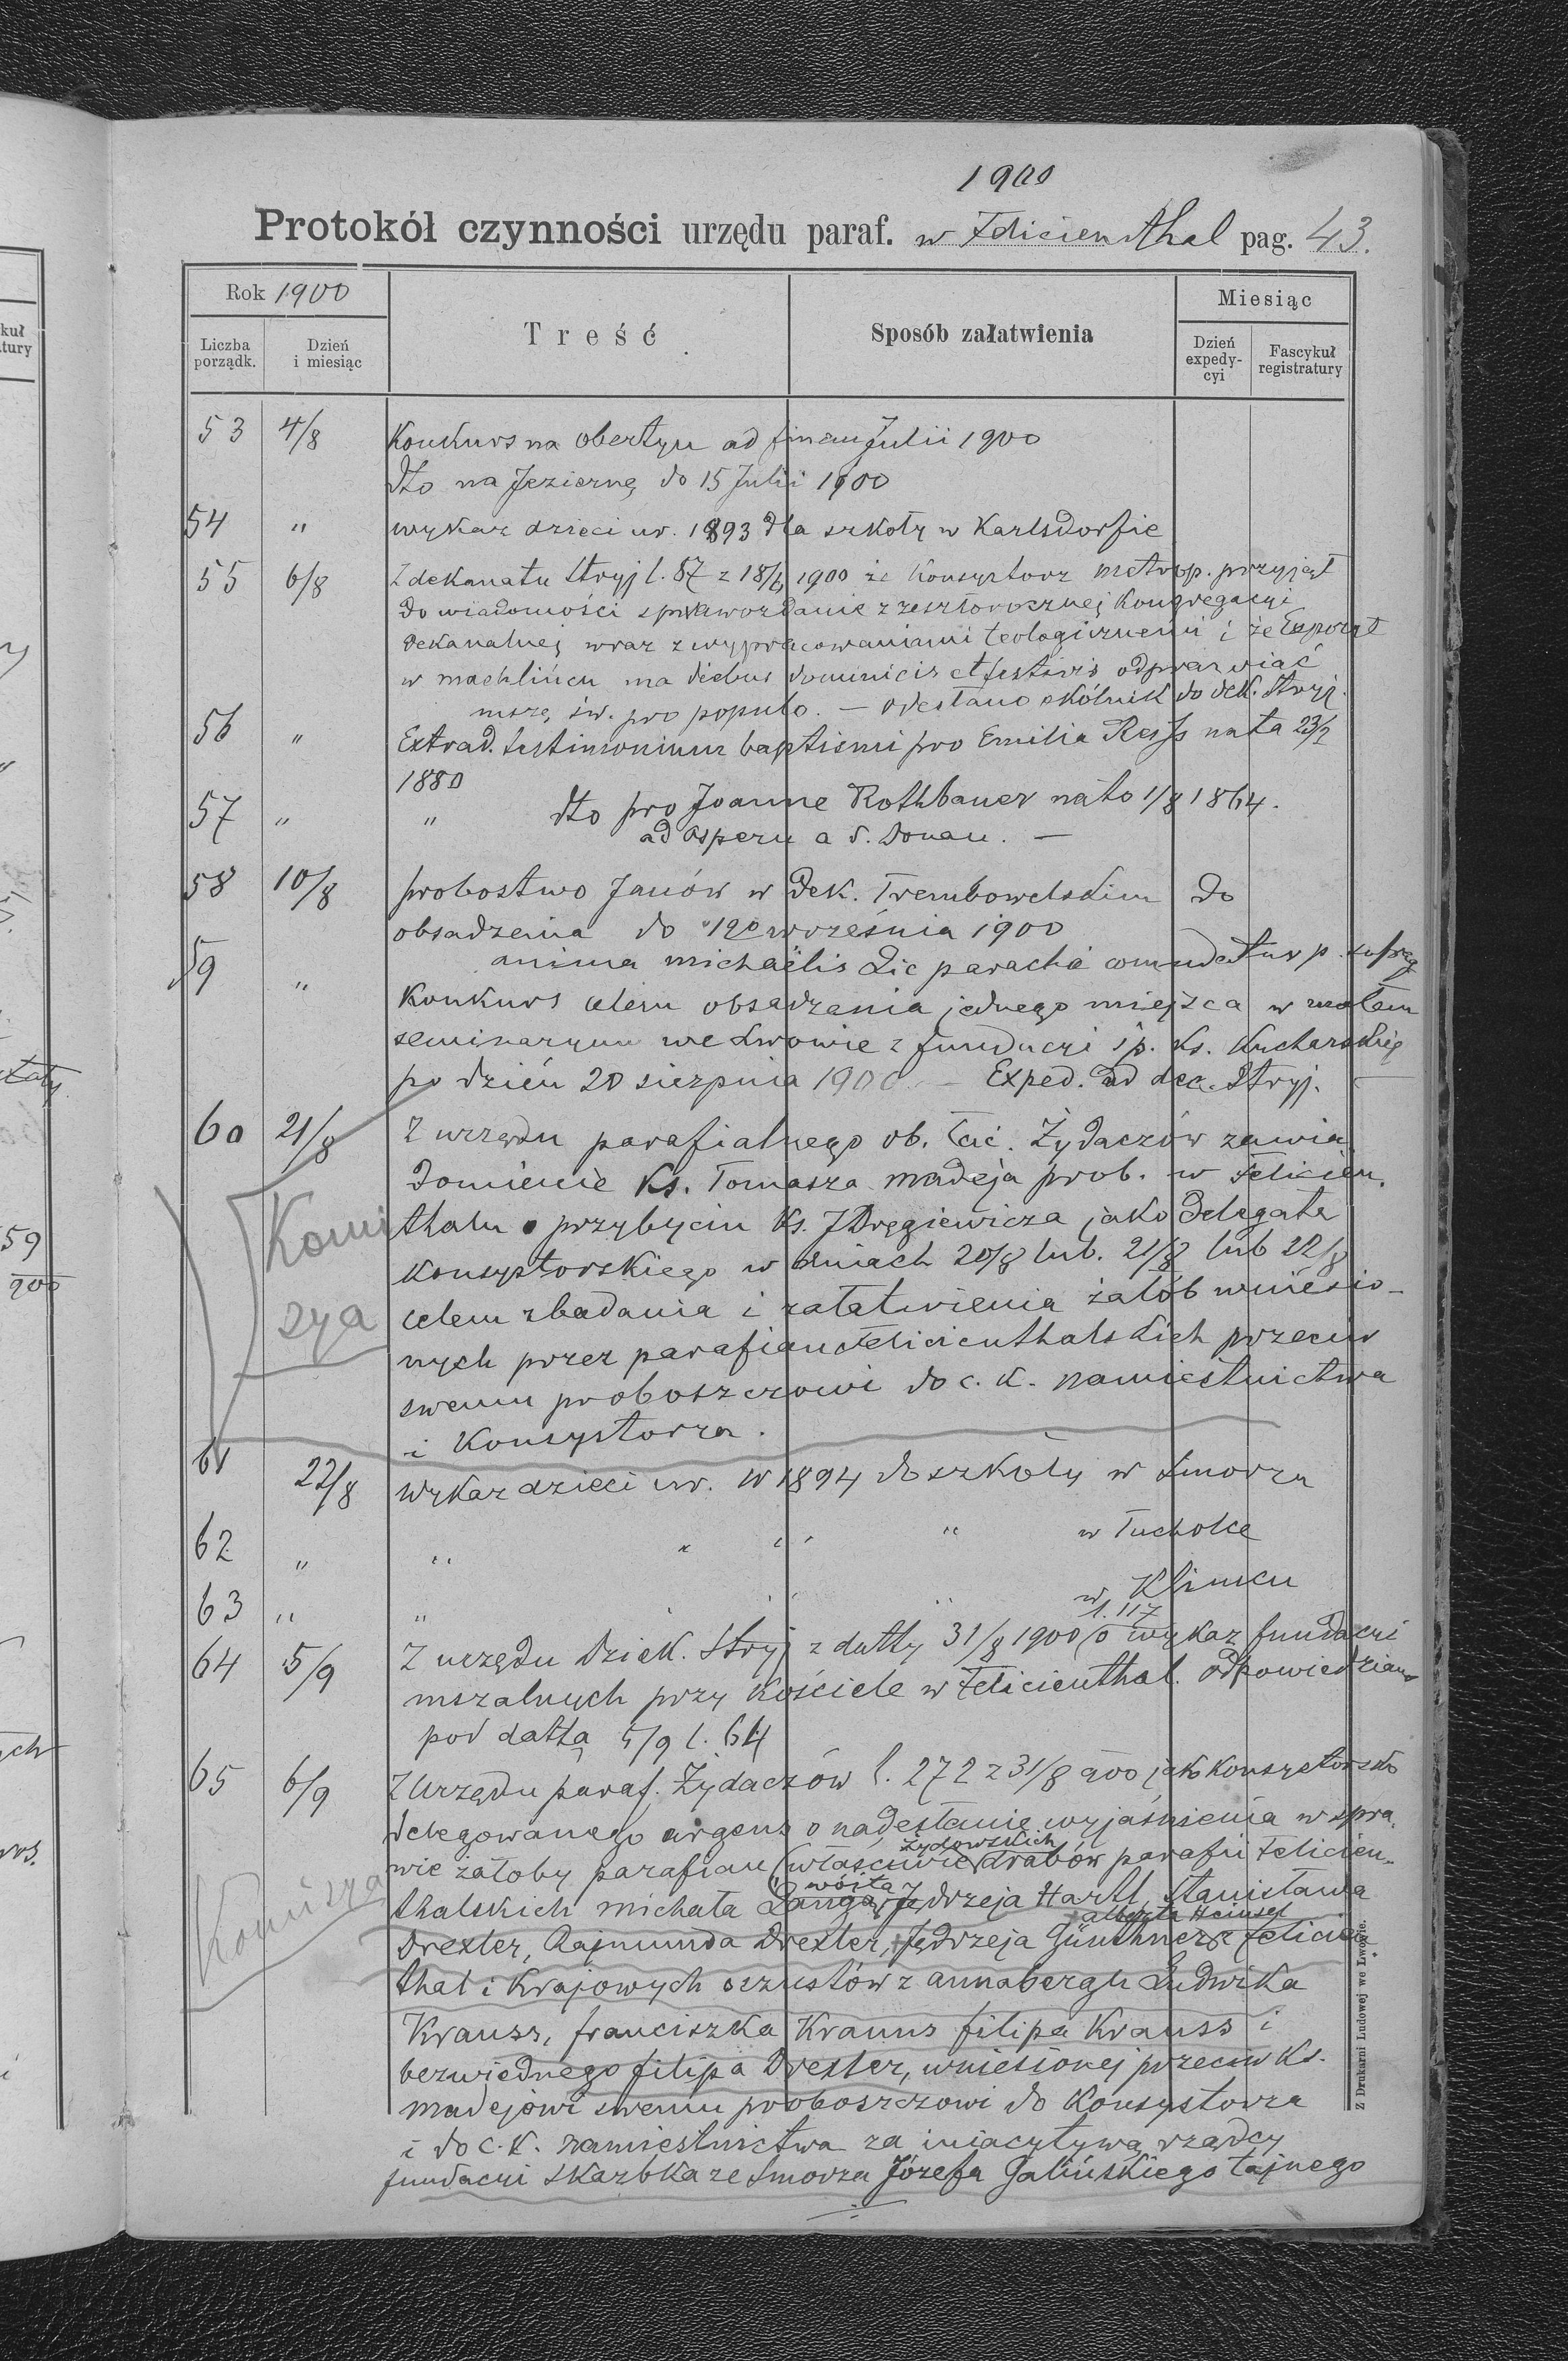 1900
Protokół czynności urzędu paraf. w Felicienthal pag. 43.
Rok 1900
Miesiąc
Liczba porządk.
Dzień i miesiąc
Treść
Sposób załatwienia
Dzień expedy-cyi
Fascykuł registratury
53 4/8 Konkurs na obertyn ad finem Julii 1900
dto na Jeziernę do 15 Julii 1900
54 " wykaz dzieci ur. 1893 dla szkoły w Karlsdorfie
55 6/8 Z dekanatu Stryj l. 87 z 18/6 1900 że Konsystorz metrop. przyjął
do wiadomości sprawozdanie z zeszłorocznej Kongregacyi
dekanalnej wraz z wypracowaniami teologicznemi i że Expozyt
w machlińcu ma diebus dominicis et festivis odprawiać
mszę św. pro populo. — odesłano okólnik do dek. Stryj.
56 " Extrad. testimonium baptismi pro Emilia Reiss nata 23/2
1880
57 " " dto pro Joanne Rothbauer nato 1/8 1864.
ad Aspern a d. Donau. —
58 10/8 probostwo Janów w dek. Trembowelskim do
obsadzenia do 120 września 1900
anima michaëlis Lic parachi
59 " Konkurs celem obsadzenia jednego miejsca w małem
seminaryum we Lwowie z fundacyi śp. Ks. Kucharskieg
po dzień 20 sierpnia 1900 — Exped. ad dec. Stryj.
60 21/8 Z urzędu parafialnego ob. łać. Żydaczów zawia
domienie Ks. Tomasza madeja prob. w Felicien.
Komi thalu o przybyciu Ks. Jdręgiewicza jako delegata
konsystorskiego w dniach 20/8 lub. 21/8 lub 22/8
zya celem zbadania i załatwienia żałób wniesio-
nych przez parafian Felicienthalskich przeciw
swemu proboszczowi do c. k. namiestnictwa
i Konsystorza.
61 22/8 wykaz dzieci ur. w 1894 do szkoły w Smorzu
62 " " " " " w Tucholce
63 " " w Klimcu
l. 117
64 5/9 Z urzędu dziek. Stryj z datty 31/8 1900 o wykaz fundacyi
mszalnych przy Kościele w Felicienthal. odpowiedziano
pod dattą 5/9 l. 64
65 6/9 Z Urzędu paraf. Żydaczów l. 272 z 31/8 900 jako konsystorsko
delegowanego urgens o nadesłanie wyjaśnienia w spra.
żydowskich
wie żałoby parafian (właściwie drabów parafii Felicien-
wójta
Komisya thalskich michała Langa, Jędrzeja Hartl, Stanisława
alberta Heinsel
Drexler, Rajmunda Drexler, Jędrzeja Günthner z Felicien
thal i Krajowych oszustów z annabergu Ludwika
Krauss, franciszka Krauss filipa Krauss i
bezwjednego filipa Drexler, wniesionej przeciw Ks.
madejowi swemu proboszczowi do Konsystorza
i do c. k. namiestnictwa za iniacytywą rządcy
fundacyi Skarbka ze Smorza Józefa Galińskiego tajnego
Z Drukarni Ludowej we Lwowie.